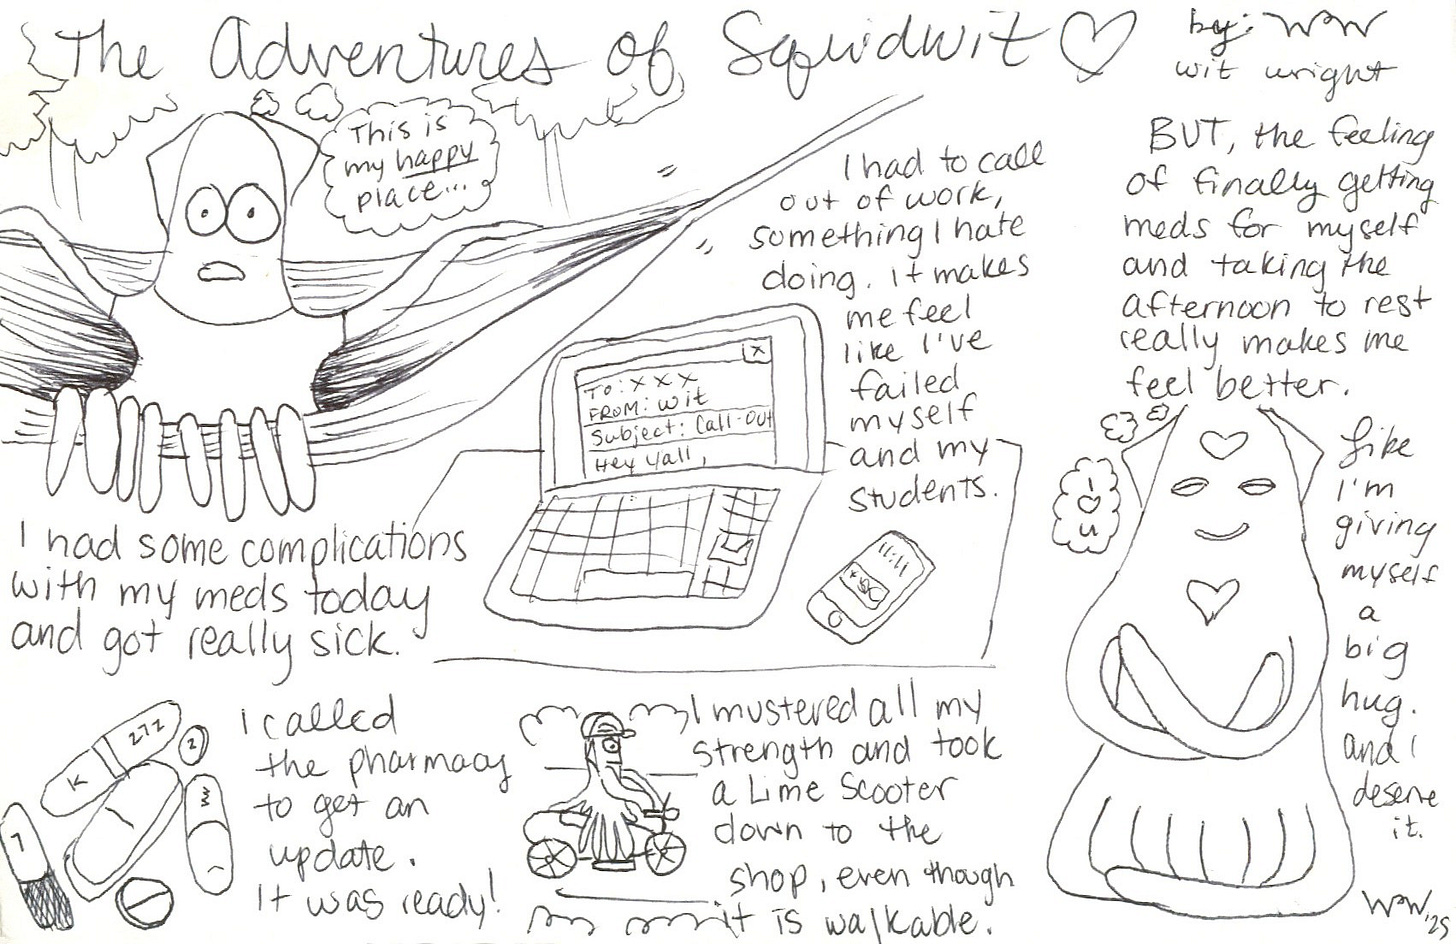 The Adventures of Squidwit
by: WW
wit wright
This is
my happy
place...
I had some complications
with my meds today
and got really sick.
I had to call
out of work,
something I hate
doing. it makes
me feel
like I've
failed
myself
and my
students.
X
To: x x x
FROM: wit
Subject: Call-Out
Hey y'all,
11:11
I called
the pharmacy
to get an
update.
It was ready!
K 272
2
W
7
I mustered all my
strength and took
a Lime Scooter
down to the
shop, even though
it is walkable.
BUT, the feeling
of finally getting
meds for myself
and taking the
afternoon to rest
really makes me
feel better.
Like
I'm
giving
myself
a
big
hug.
and I
deserve
it.
I
♡
u
WW '25